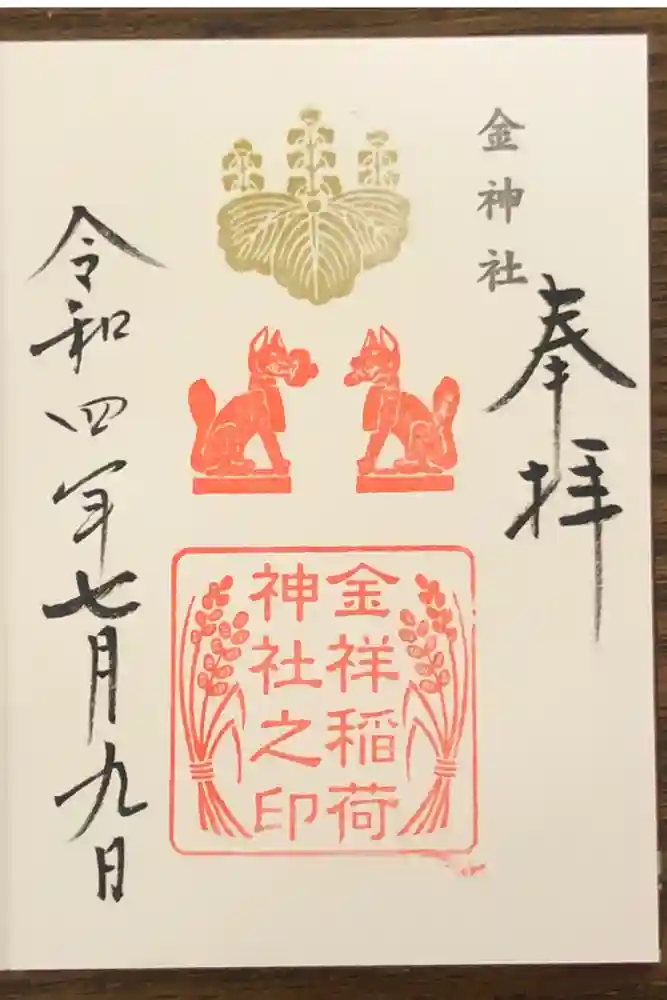 金神社
奉拝
金祥稲荷
神社之印
令和四年七月九日